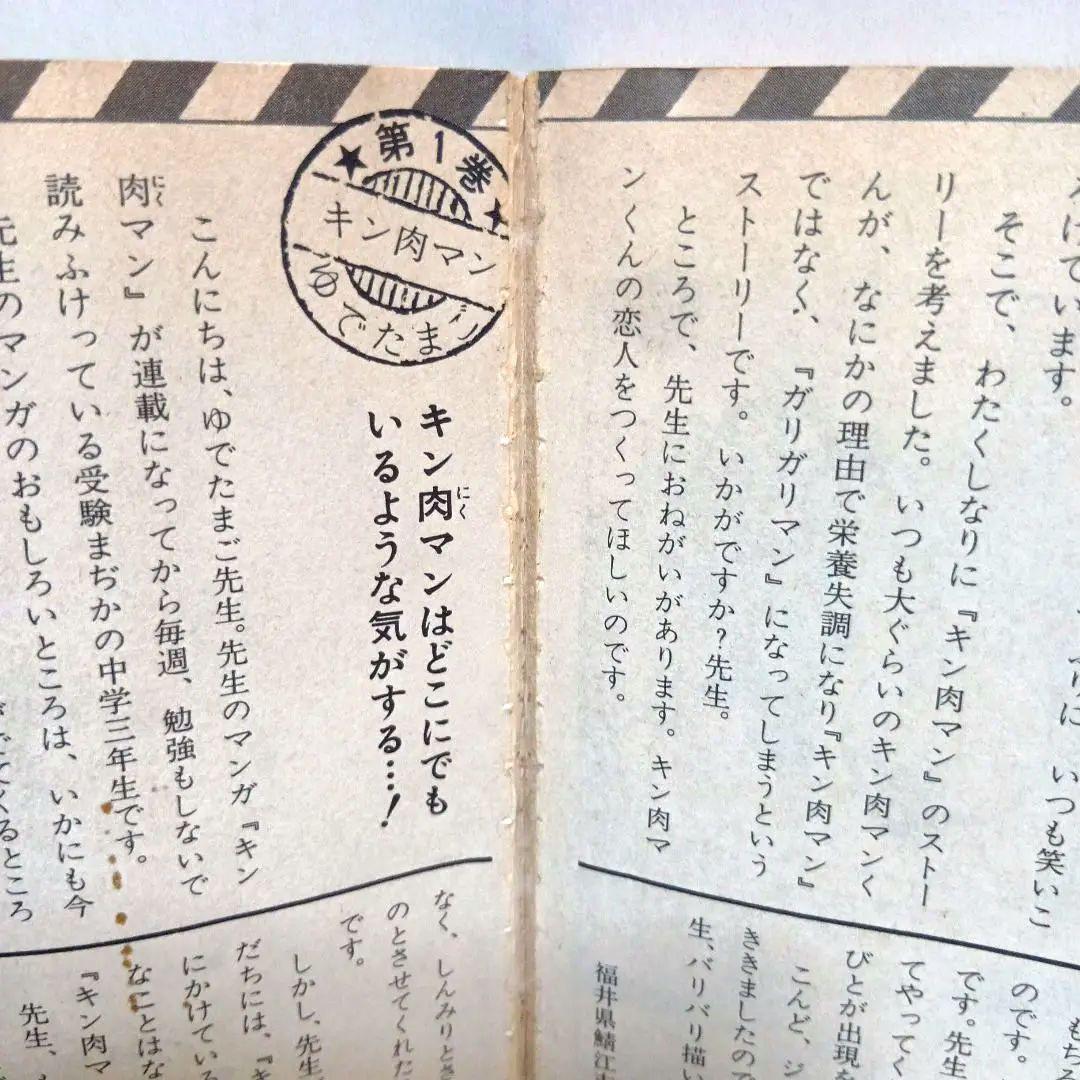 ろけています。
そこで、わたくしなりに『キン肉マン』のストー
リーを考えました。いつも大ぐらいのキン肉マンく
んが、なにかの理由で栄養失調になり『キン肉マン』
ではなく、『ガリガリマン』になってしまうという
ストーリーです。いかがですか?先生。
ところで、先生におねがいがあります。キン肉マ
ンくんの恋人をつくってほしいのです。
もちろ
のです。
です。先生
てやってく
びとが出現を
こんど、ジ
ききましたので
生、バリバリ描い
福井県鯖江市
第1巻
キン肉マン
ゆでたまご
キン肉マンはどこにでも
にく
いるような気がする…!
こんにちは、ゆでたまご先生。先生のマンガ『キン
肉マン』が連載になってから毎週、勉強もしないで
にく
読みふけっている受験まぢかの中学三年生です。
先生のマンガのおもしろいところは、いかにも今
でてくるところ
なく、しんみりとさ
のとさせてくれた
です。
しかし、先生
だちには、『キ
にかけている
なことはな
『キン肉マ
先生、